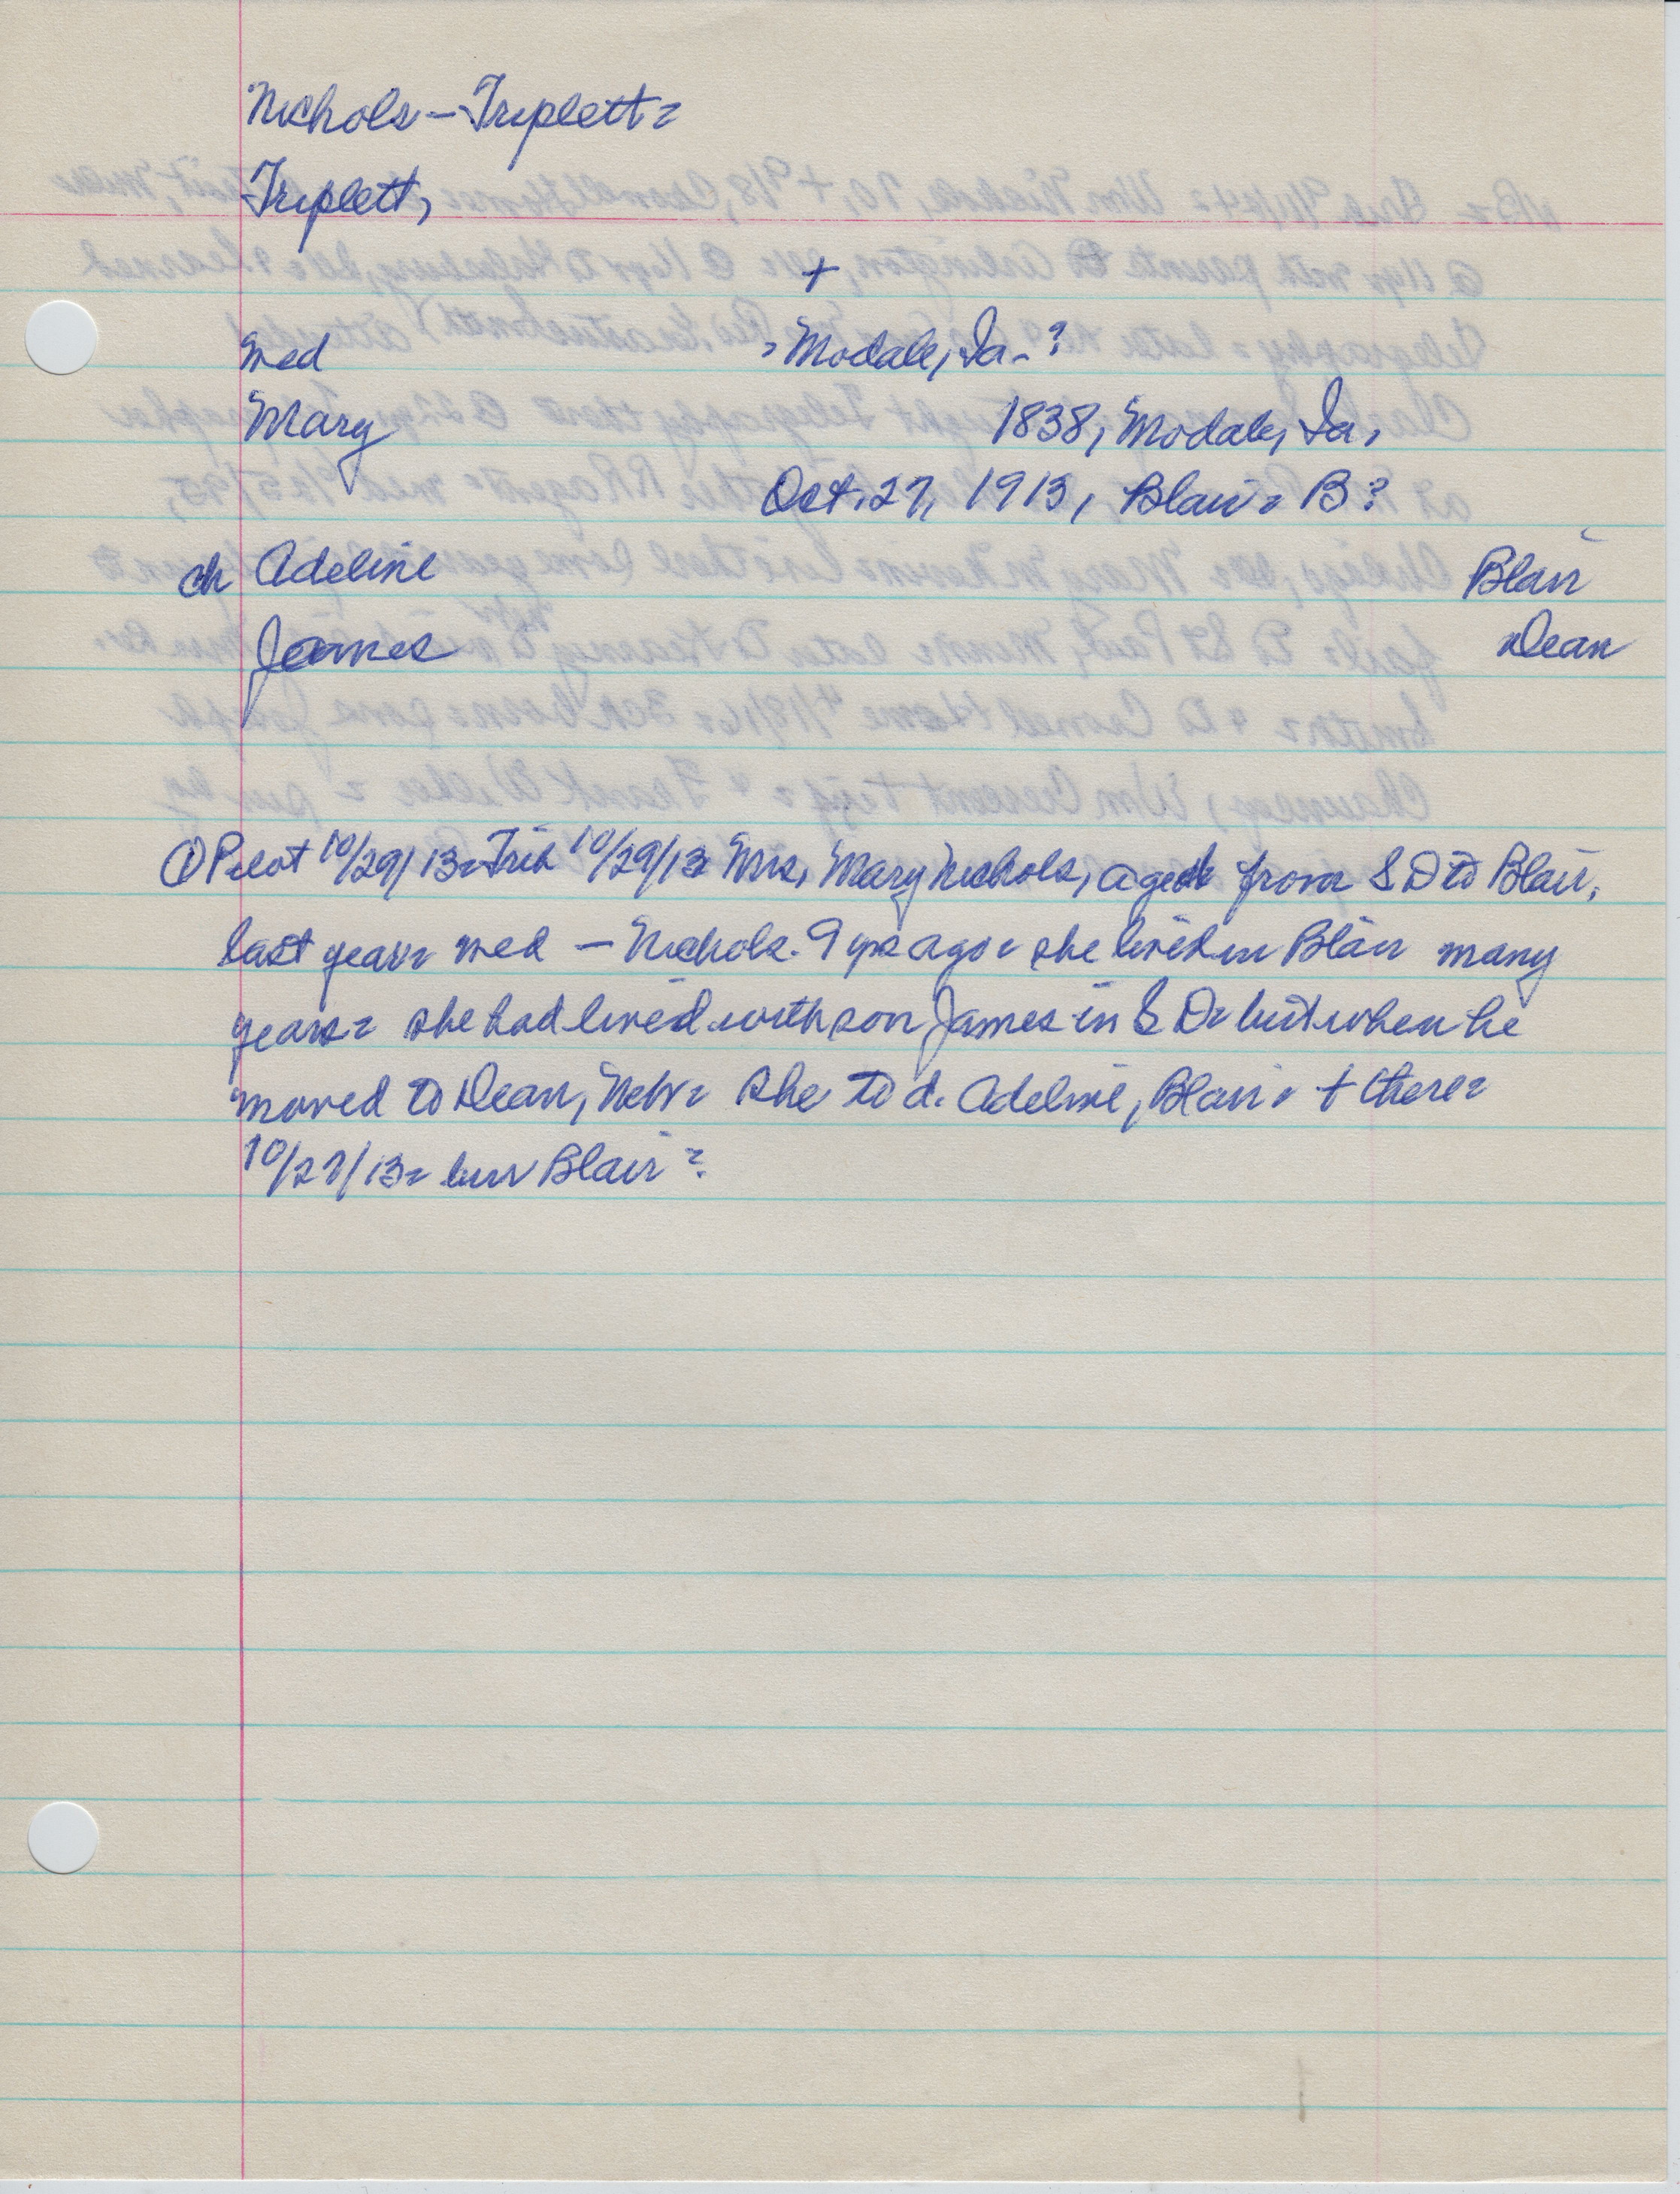 Nichols – Triplett =
Triplett,
+
med = Modale, Ia - ?
Mary 1838, Modale, Ia,
Oct. 27, 1913, Blair = B?
ch Adeline Blair
James Dean
① Pilot 10/29/13 = Trib 10/29/13 Mrs, Mary Nichols, aged from S D to Blair,
last year = med — Nichols. 9 yrs ago = she lived in Blair many
years = she had lived with son James in S D = but when he
moved to Dean, Nebr = she to d. Adeline, Blair = + there =
10/27/13 = bur Blair ?